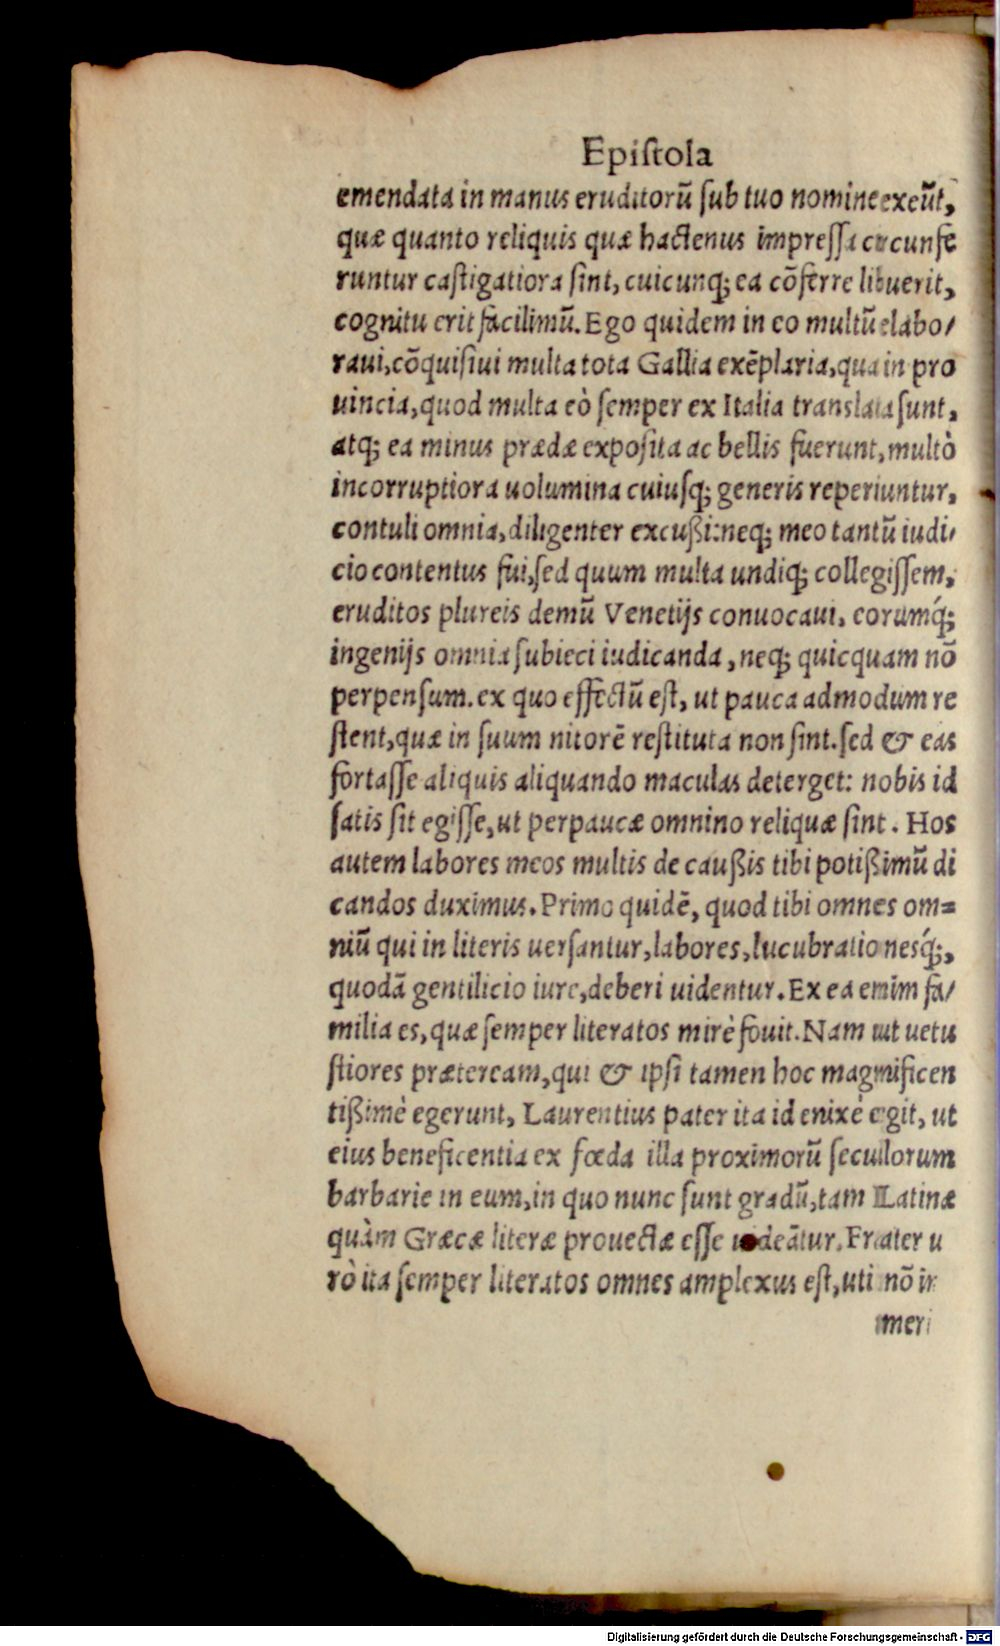 Epiſtola
emendata in manus eruditorũ ſub tuo nomine exeũt,
quæ quanto reliquis quæ hactenus impreſſa circunfe
runtur caſtigatiora ſint, cuicunq; ea cõferre libuerit,
cognitu erit facilimũ. Ego quidem in eo multũ elabo/
raui, cõquiſiui multa tota Gallia exẽplaria, qua in pro
uincia, quod multa eò ſemper ex Italia translata ſunt,
atq; ea minus prædæ expoſita ac bellis fuerunt, multò
incorruptiora uolumina cuiuſq; generis reperiuntur,
contuli omnia, diligenter excußi: neq; meo tantũ iudi/
cio contentus fui, ſed quum multa undiq; collegiſſem,
eruditos plureis demũ Venetijs conuocaui, eorumq́;
ingenijs omnia ſubieci iudicanda, neq; quicquam nõ
perpenſum. ex quo effectũ eſt, ut pauca admodum re
ſtent, quæ in ſuum nitorẽ reſtituta non ſint. ſed & eas
fortaſſe aliquis aliquando maculas deterget: nobis id
ſatis ſit egiſſe, ut perpaucæ omnino reliquæ ſint. Hos
autem labores meos multis de caußis tibi potißimũ di
candos duximus. Primo quidẽ, quod tibi omnes om=
niũ qui in literis uerſantur, labores, lucubrationesq́;,
quodã gentilicio iure, deberi uidentur. Ex ea enim fa/
milia es, quæ ſemper literatos mirè fouit. Nam ut uetu
ſtiores prætereàm, qui & ipſi tamen hoc magnificen
tißimè egerunt, Laurentius pater ita id enixè egit, ut
eius beneficentia ex fœda illa proximorũ ſecullorum
barbarie in eum, in quo nunc ſunt gradũ, tam Latinæ
quàm Græcæ literæ prouectæ eſſe uideãtur. Frater u
rò ita ſemper literatos omnes amplexus eſt, uti nõ im
meri
Digitalisierung gefördert durch die Deutsche Forschungsgemeinschaft - DFG